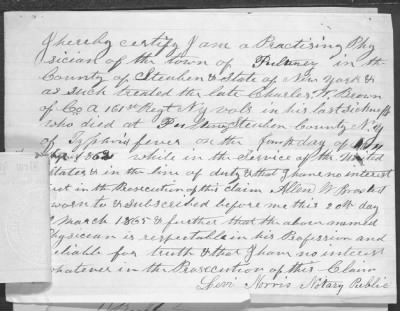 I hereby certify I am a Practising Phy
sician of the town of Pulteney in the
County of Steuben & State of New York &
as such treated the late Charles W. Brown
of Co A 161st Regt N.Y vols in his last sickness
who died at Pulteney Steuben County N.Y
of Typhoid fever on the fourth day of
1862 while in the Service of the United
States & in the line of duty & that I have no interest
in the Prosecution of this claim Allen W
sworn to & Subscribed before me this 20th day
March 1865 & further that the above named
Physician is respectable in his Profession and
reliable for truth & that I have no interest
whatever in the Prosecution of this Claim
Levi Norris Notary Public